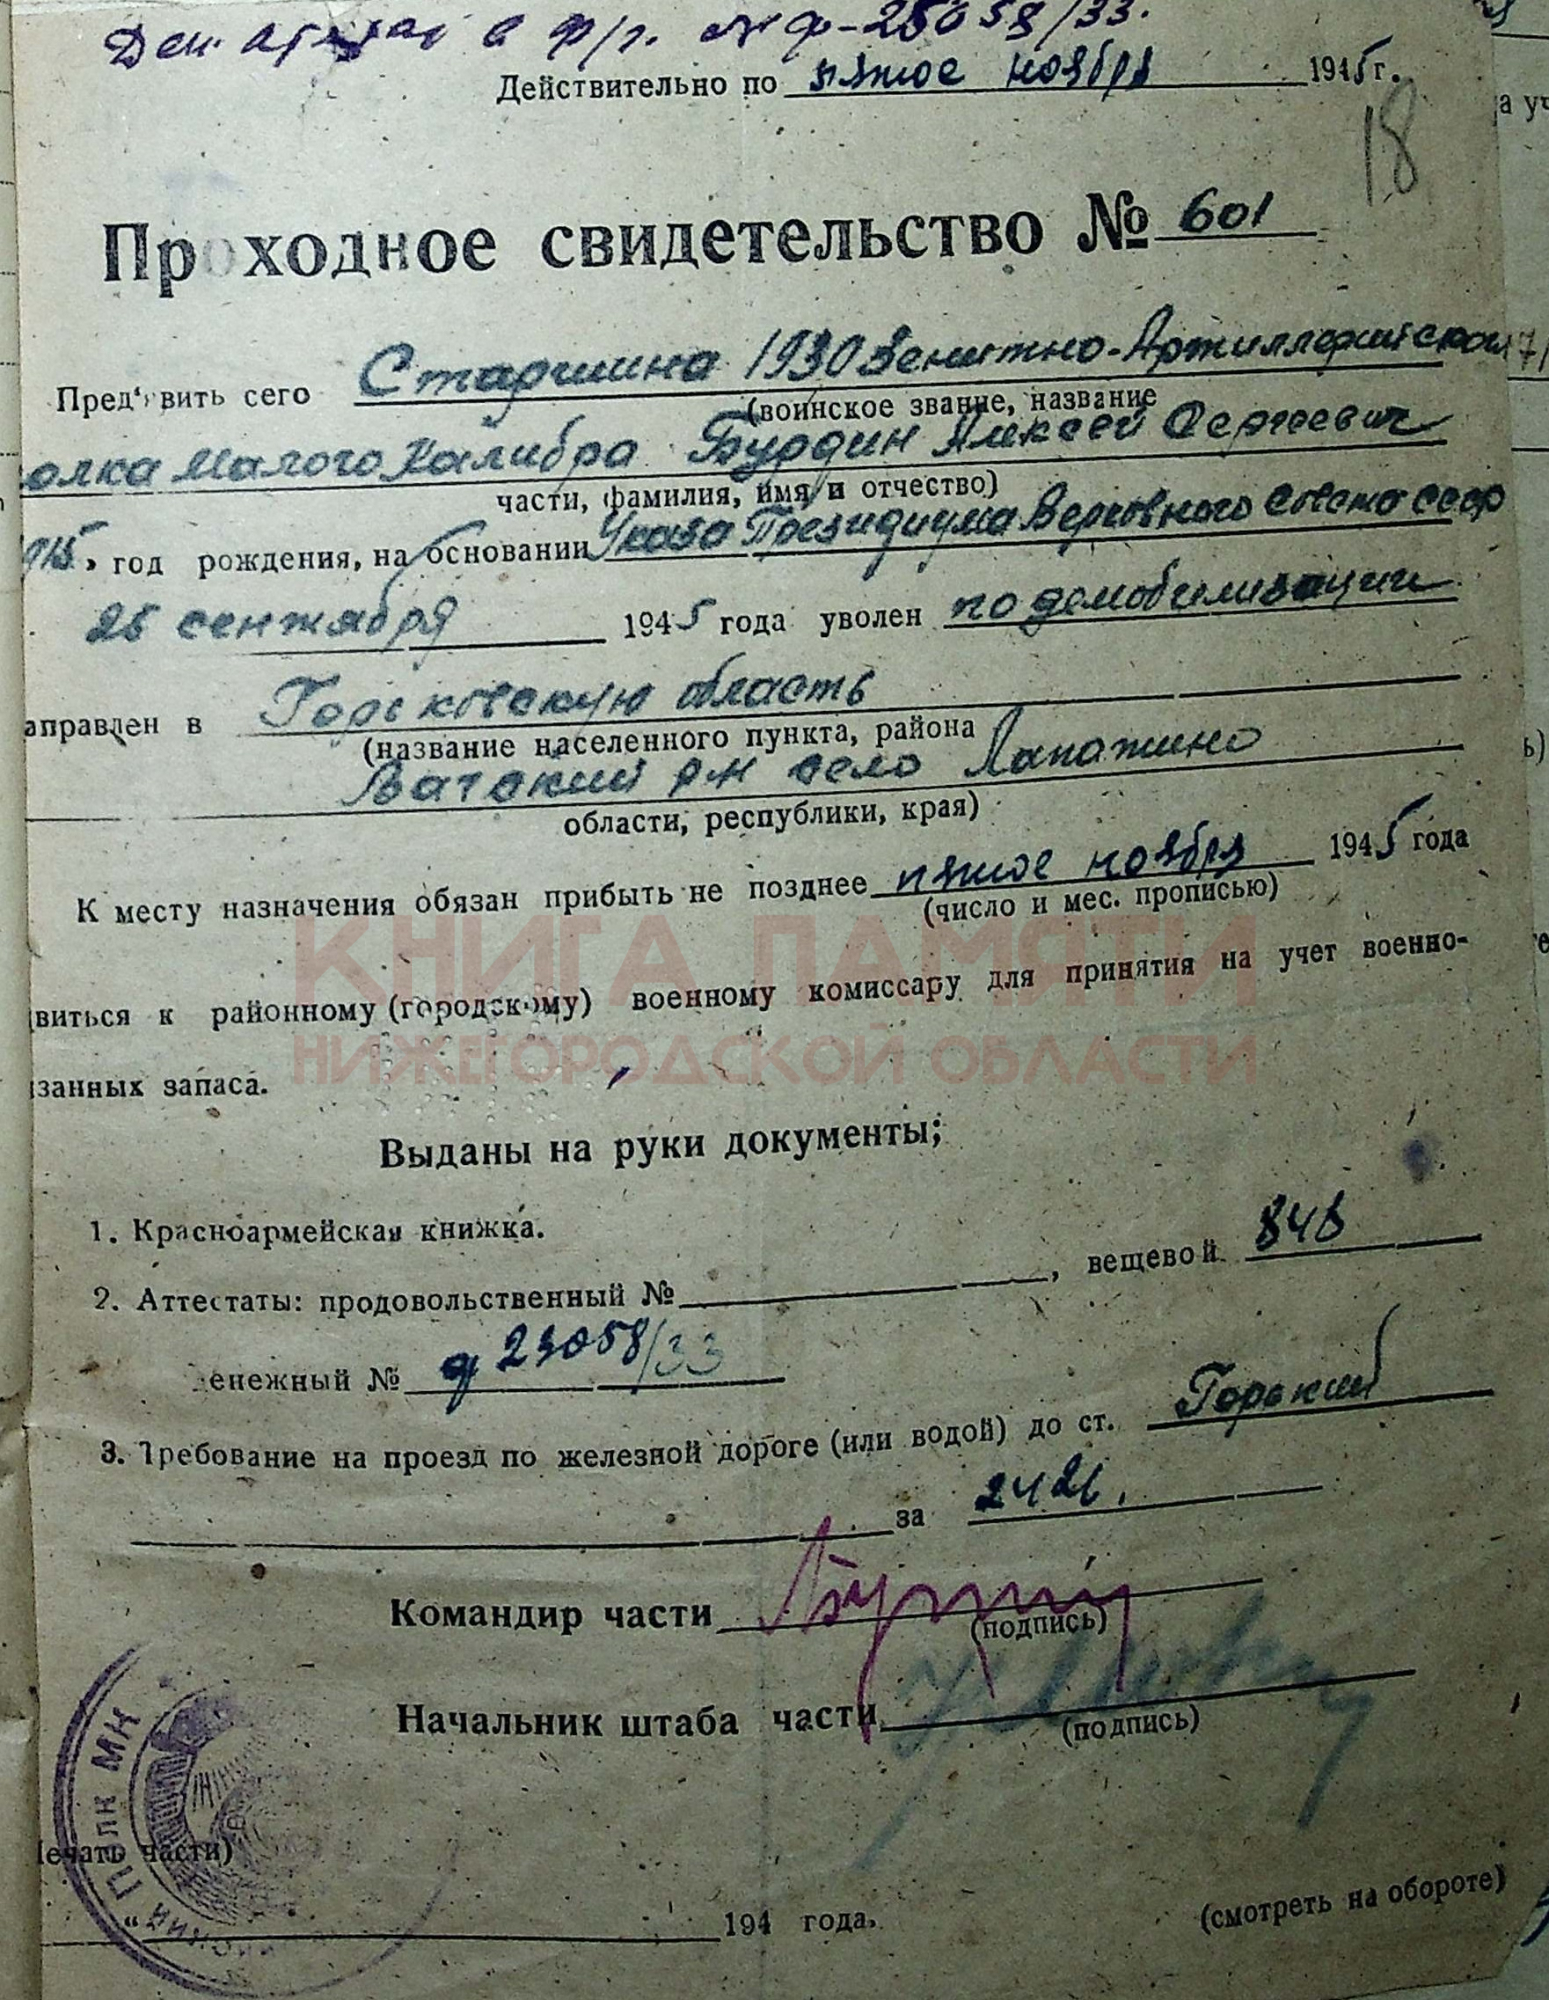 Ден. в ф/г. № ф-25058/33.
Действительно по пятое ноября 1945 г.
18
Проходное свидетельство № 601
Пред'явить сего Старшина 1930 Зенитно-Артиллерийского
(воинское звание, название
полка Малого Калибра Бурдин Алексей Сергеевич
части, фамилия, имя и отчество)
1915, год рождения, на основании Указа Президиума Верховного Совета СССР
25 сентября 1945 года уволен по демобилизации
аправлен в Горьковскую область
(название населенного пункта, района
Вачский р-н село Лапажино
области, республики, края)
К месту назначения обязан прибыть не позднее пятое ноября 1945 года
(число и мес. прописью)
виться к районному (городскому) военному комиссару для принятия на учет военно-
занных запаса.
КНИГА ПАМЯТИ
НИЖЕГОРОДСКОЙ ОБЛАСТИ
Выданы на руки документы;
1. Красноармейская книжка.
2. Аттестаты: продовольственный № , вещевой 846
енежный № ф 25058/33
3. Требование на проезд по железной дороге (или водой) до ст. Горький
за 2426.
Командир части
(подпись)
Начальник штаба части
(подпись)
Полк МК
Печать части)
" 194 года.
(смотреть на обороте)